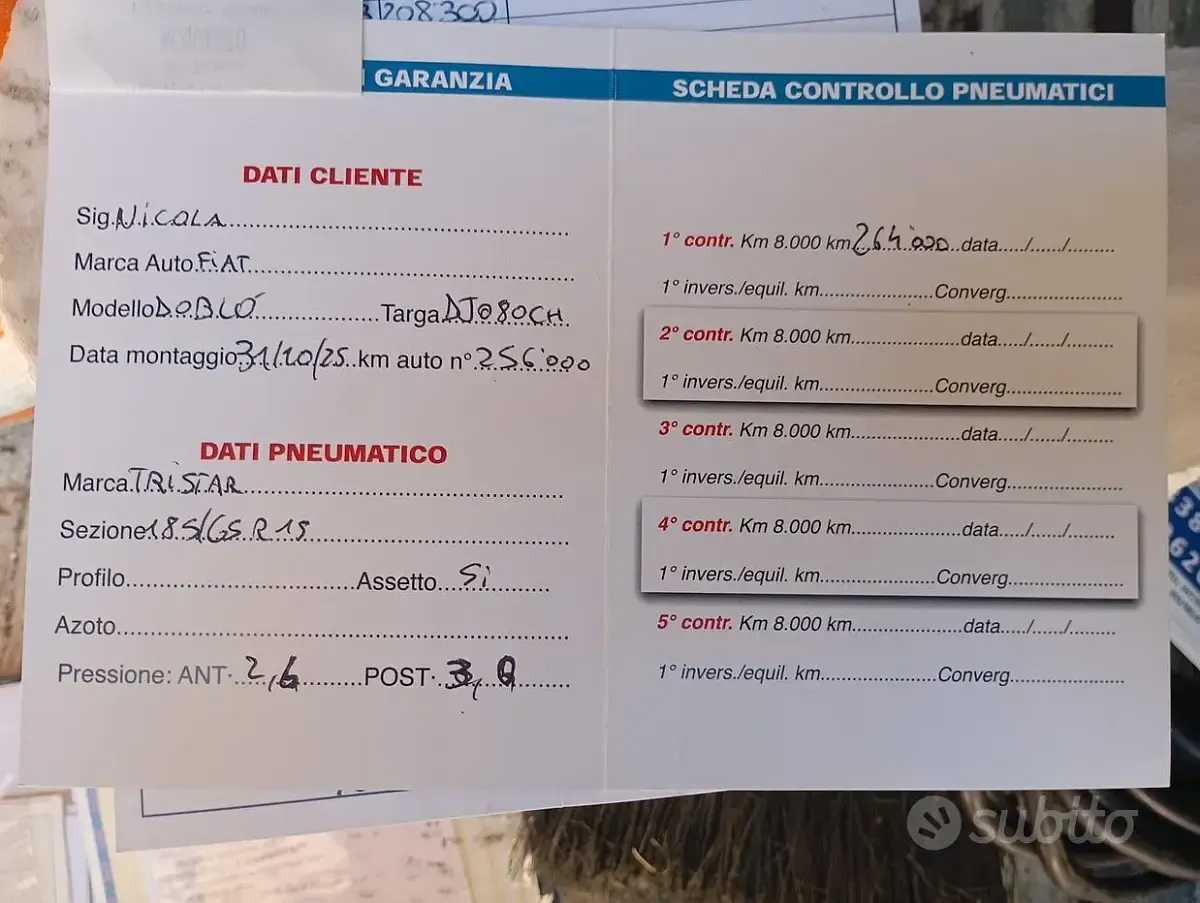 208300
GARANZIA
DATI CLIENTE
Sig. NICOLA
Marca Auto FIAT
Modello DOBLÒ Targa DJ080CH
Data montaggio 31/10/25 km auto n° 256.000
DATI PNEUMATICO
Marca TRISTAR
Sezione 185/65 R 15
Profilo Assetto Si
Azoto
Pressione: ANT. 2,6 POST. 3,0
SCHEDA CONTROLLO PNEUMATICI
1° contr. Km 8.000 km 264.000 data...../....../.........
1° invers./equil. km Converg.
2° contr. Km 8.000 km data...../....../.........
1° invers./equil. km Converg.
3° contr. Km 8.000 km data...../....../.........
1° invers./equil. km Converg.
4° contr. Km 8.000 km data...../....../.........
1° invers./equil. km Converg.
5° contr. Km 8.000 km data...../....../.........
1° invers./equil. km Converg.
subito